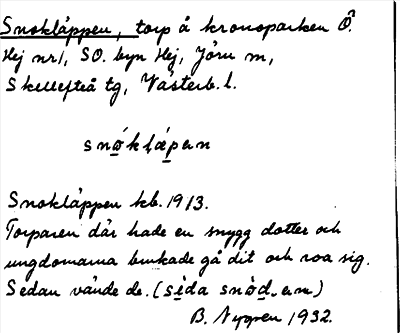 Snokläppen, torp å kronoparken Ö.
Hej nr 1, SO. byn Hej, Jörn sn,
Skellefteå tg, Västerb. l.
Snokläppen kb. 1913.
Torparen där hade en snygg dotter och
ungdomarna brukade gå dit och roa sig.
Sedan vände de.
B. Nygren 1932.